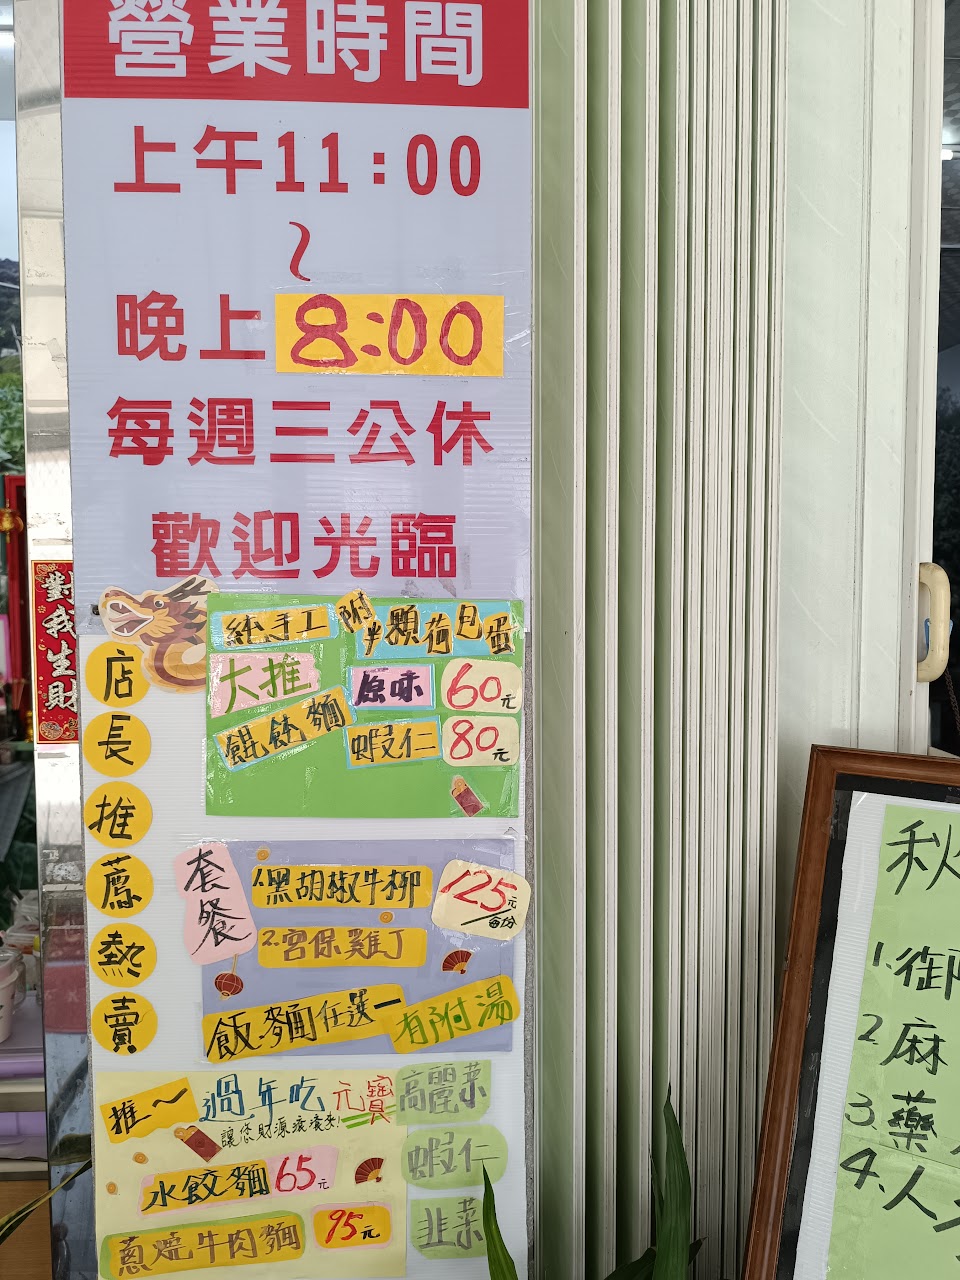 營業時間
上午11:00
~
晚上8:00
每週三公休
歡迎光臨
對我生財
店長推薦熱賣
純手工 附半顆荷包蛋
大推 原味 60元
餛飩麵 蝦仁 80元
套餐
1.黑胡椒牛柳 125元/每份
2.宮保雞丁
飯.麵任選一 有附湯
推~ 過年吃元寶
讓您財源滾滾來!
高麗菜
蝦仁
韭菜
水餃麵 65元
蔥燒牛肉麵 95元
秋
1.御
2.麻
3.藥
4.人